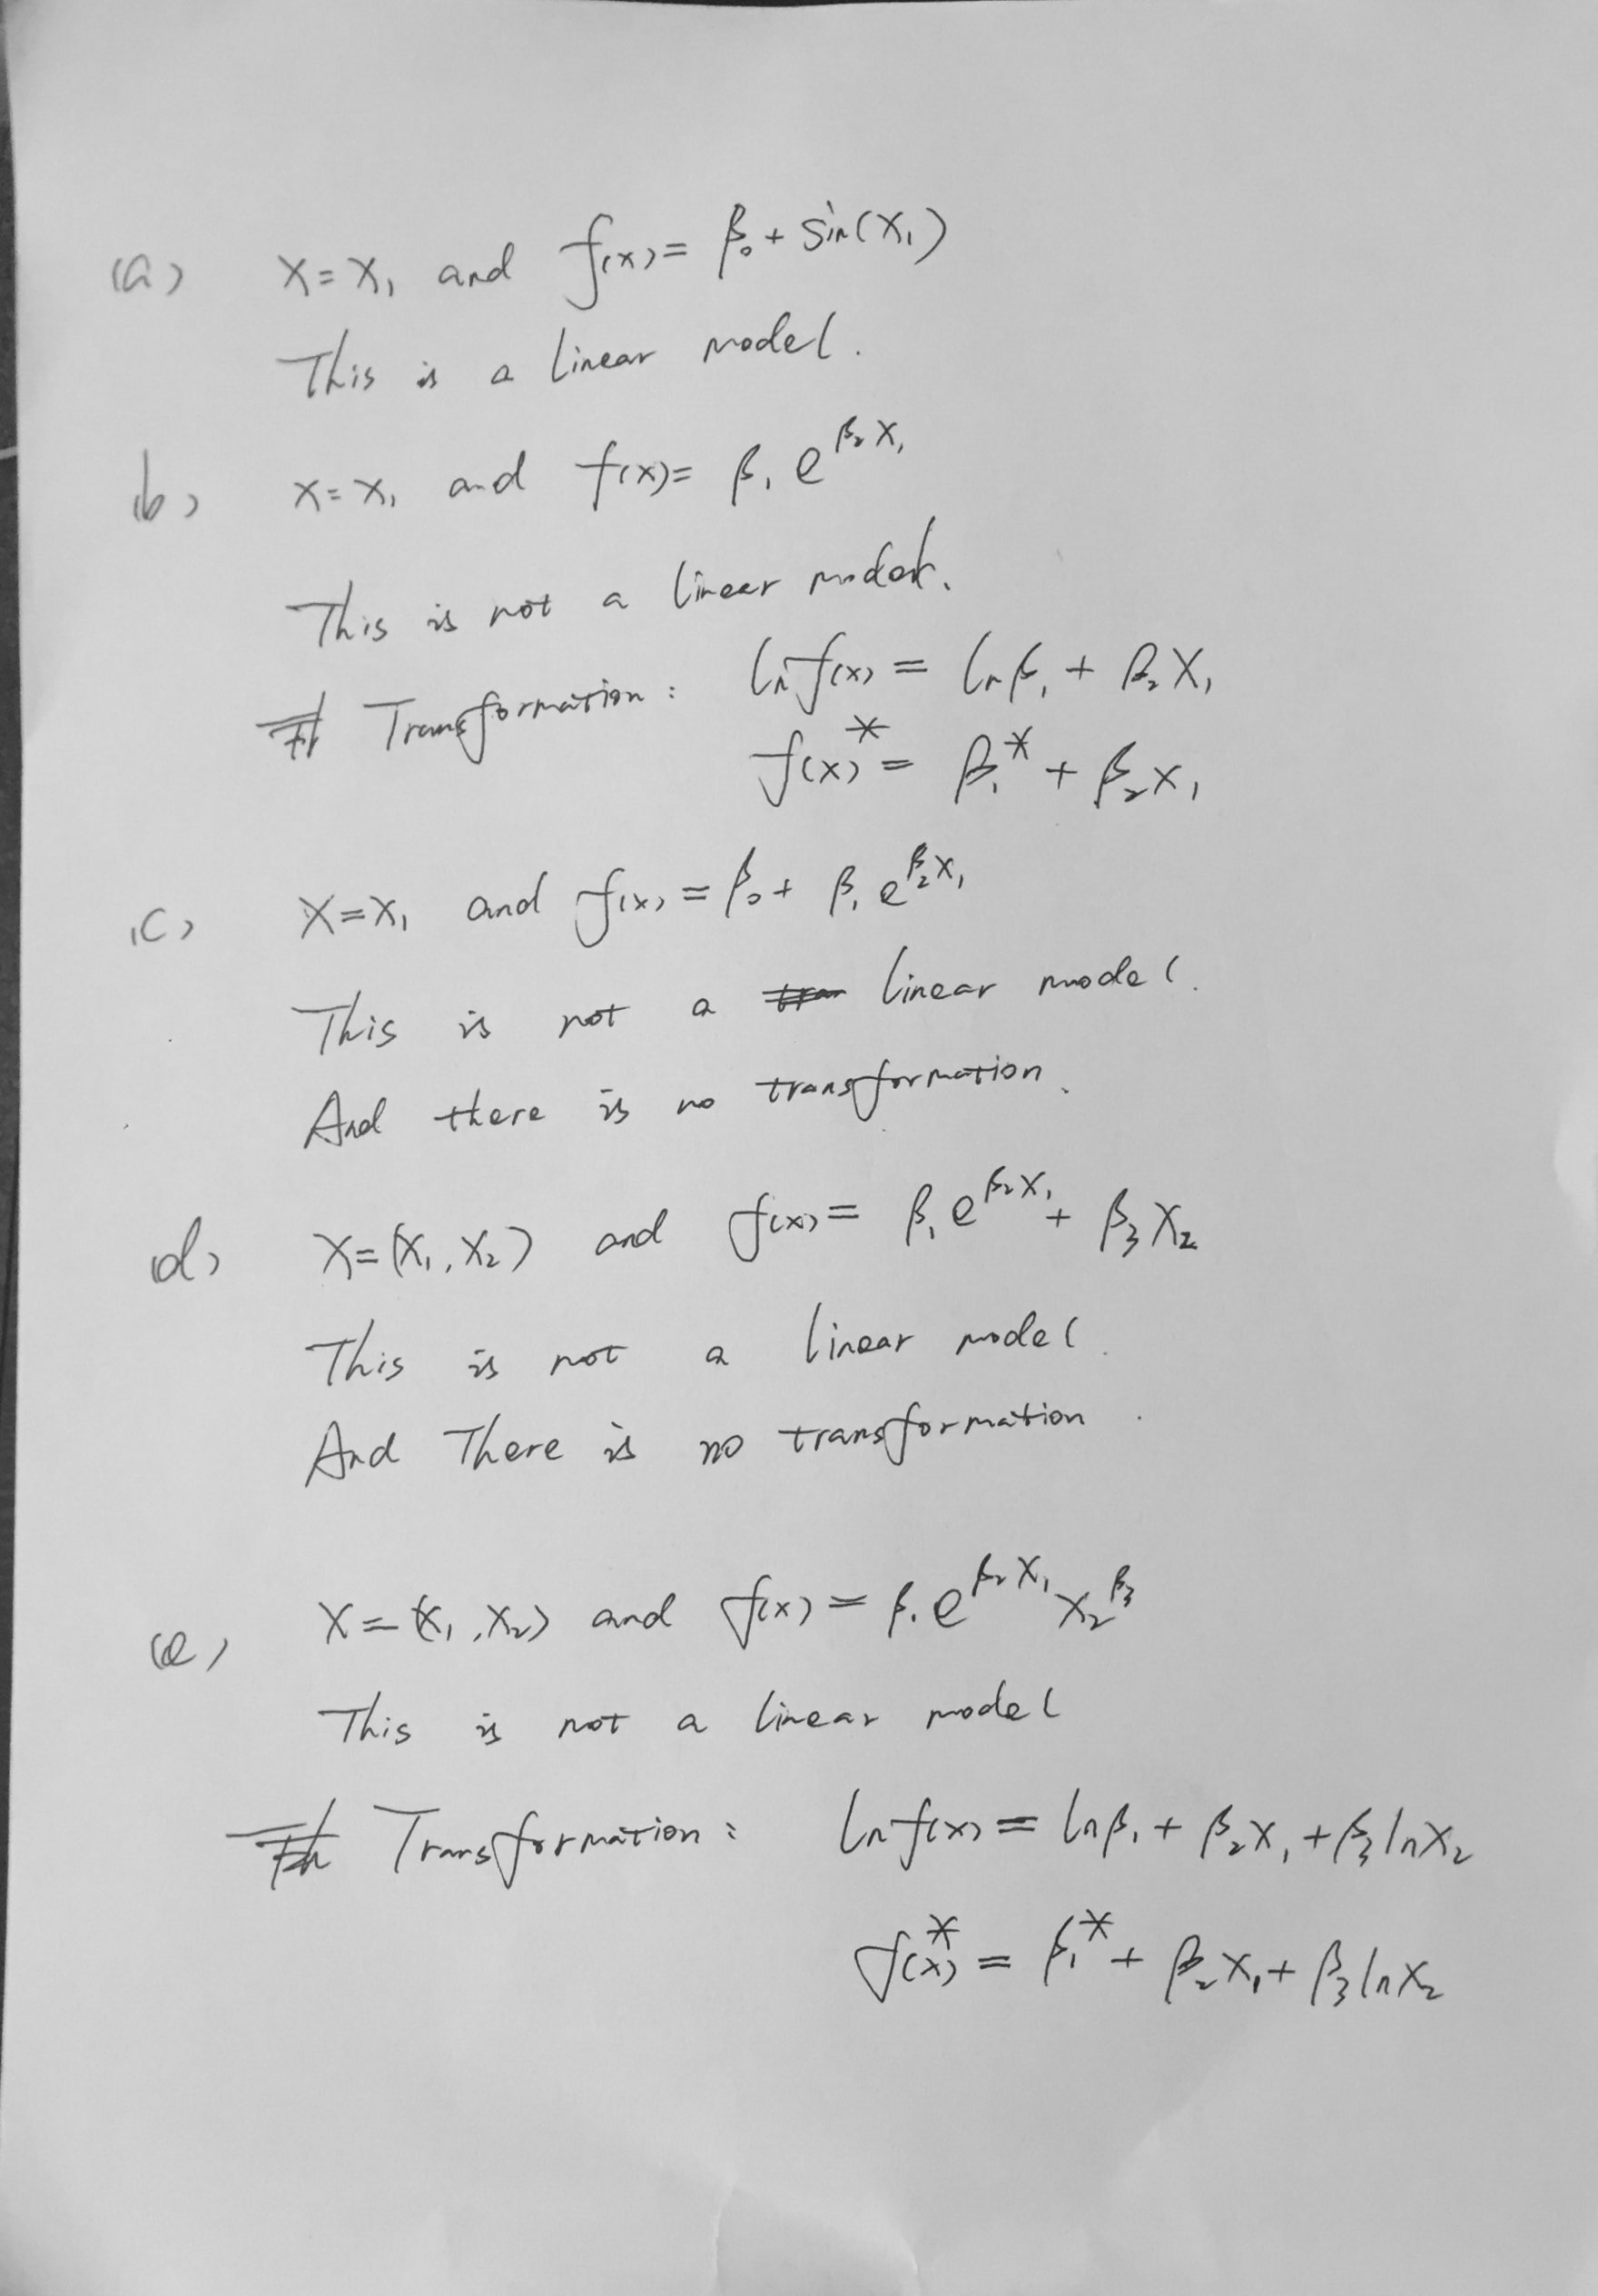 (a) X=X₁ and f(x)= β₀+ sin(X₁)
This is a linear model.
(b) X=X₁ and f(x)= β₁ e^{β₂X₁}
This is not a linear model.
Transformation: ln f(x) = ln β₁ + β₂ X₁
f(x)* = β₁* + β₂X₁
(c) X=X₁ and f(x) = β₀+ β₁ e^{β₂X₁}
This is not a linear model.
And there is no transformation.
(d) X=(X₁, X₂) and f(x)= β₁e^{β₂X₁}+ β₃X₂
This is not a linear model.
And There is no transformation.
(e) X=(X₁, X₂) and f(x) = β₁e^{β₂X₁}X₂^{β₃}
This is not a linear model
Transformation: ln f(x) = ln β₁ + β₂X₁ + β₃ ln X₂
f(x)* = β₁* + β₂X₁ + β₃ ln X₂